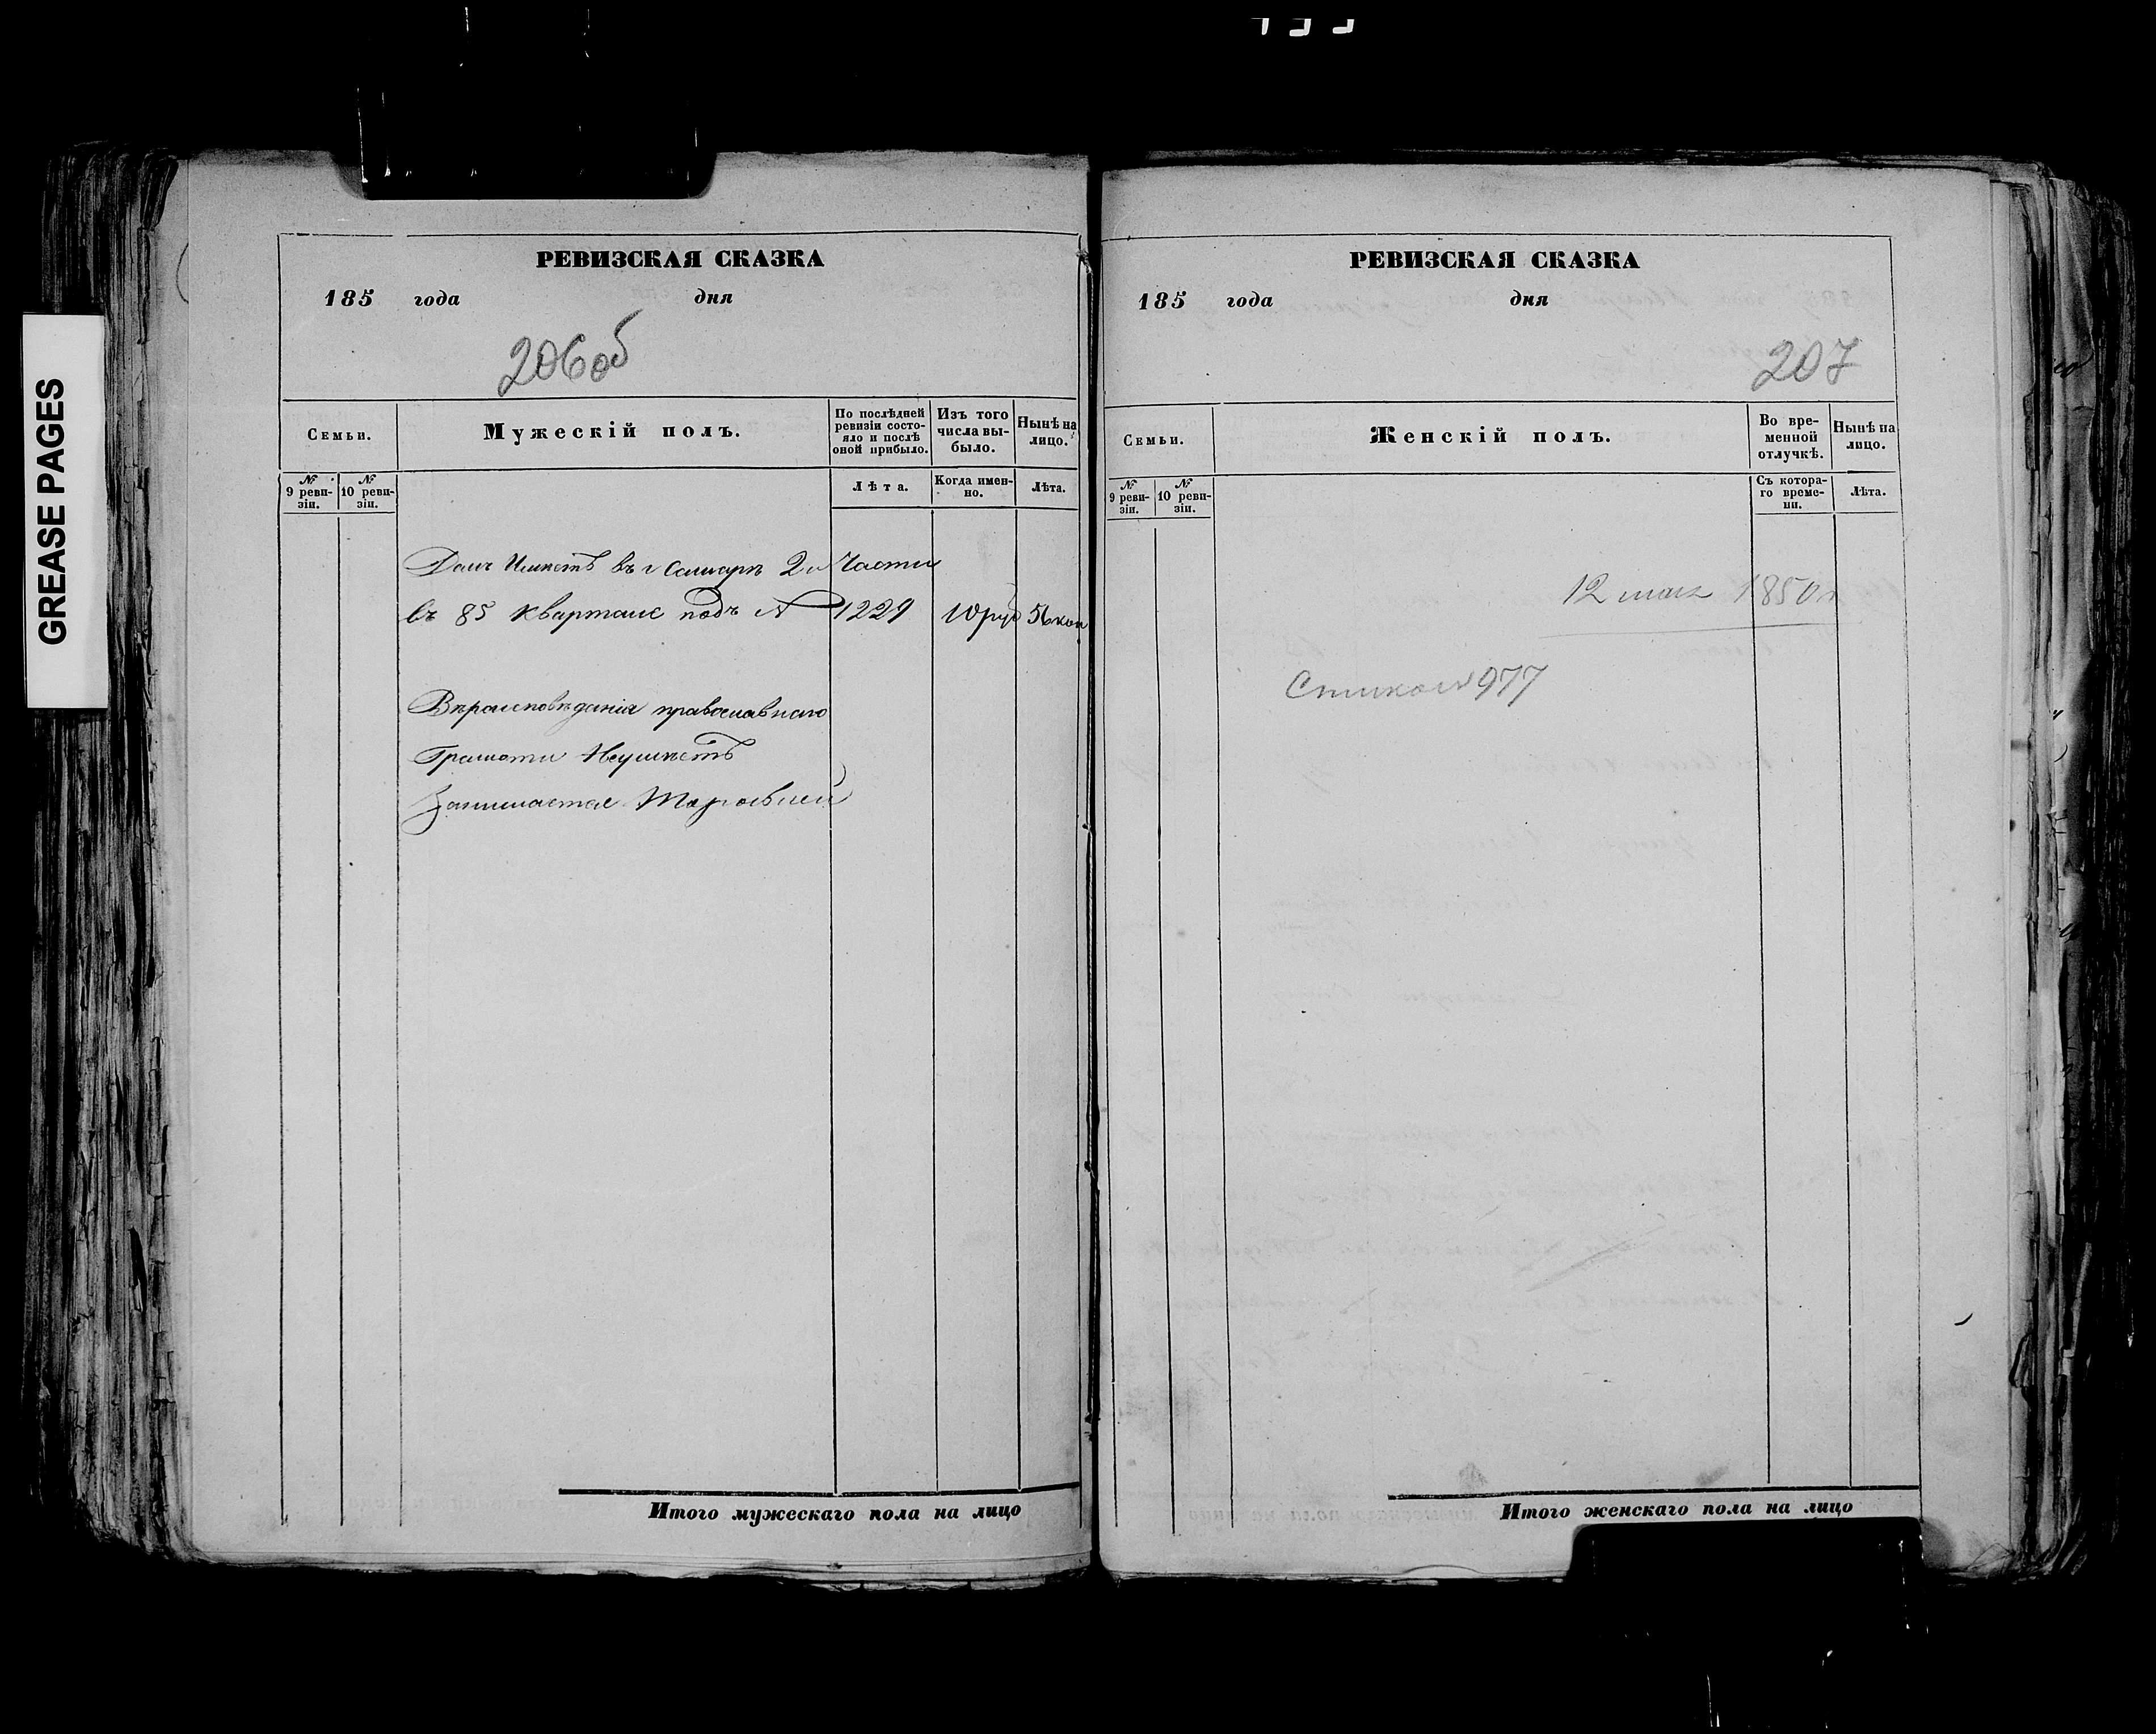 GREASE PAGES
РЕВИЗСКАЯ СКАЗКА
185 года дня
206об
Семьи.
Мужескій полъ.
По послѣдней ревизіи состояло и послѣ оной прибыло.
Изъ того числа выбыло.
Нынѣ на лицо.
№ 9 ревизіи.
№ 10 ревизіи.
Лѣта.
Когда именно.
Лѣта.
Домъ Имѣетъ въ г Самарѣ 2й Части
въ 85 кварталѣ подъ № 1229 10 руб 56 коп
Вѣроисповѣданія православнаго
Грамоти Неумѣетъ
Занимается Торговлей
Итого мужескаго пола на лицо
РЕВИЗСКАЯ СКАЗКА
185 года дня
207
Семьи.
Женскій полъ.
Во временной отлучкѣ.
Нынѣ на лицо.
№ 9 ревизіи.
№ 10 ревизіи.
Съ котораго времени.
Лѣта.
12 мая 1850
977
Итого женскаго пола на лицо